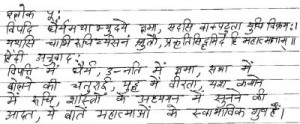 श्लोक पू:
विपदि धैर्यमथाभ्युदये क्षमा, सदसि वाक्पटुता युधि विक्रमः।
यशसि चाभिरुचिर्व्यसनं श्रुतौ, प्रकृतिसिद्धमिदं हि महात्मनाम्॥
हिंदी अनुवाद:
विपत्ति में धैर्य, उन्नति में क्षमा, सभा में
बोलने की चतुराई, युद्ध में वीरता, यश
में रूचि, शास्त्रों के अध्ययन में सुनने की
आदत, ये बातें महात्माओं के स्वाभाविक गुण हैं।